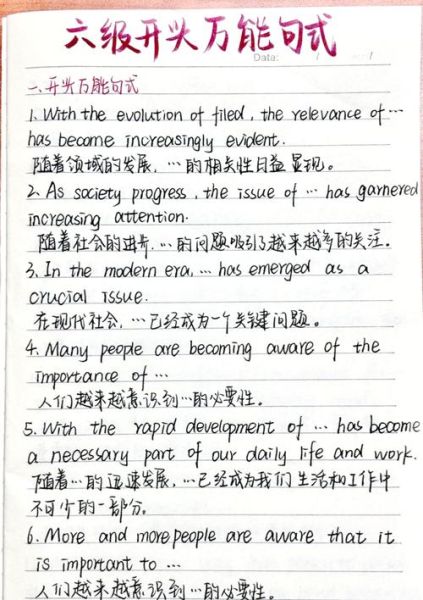 六级开头万能句式
Date:
一、开头万能句式
1. With the evolution of filed, the relevance of …
has become increasingly evident.
随着领域的发展, …的相关性日益显现。
2. As society progress, the issue of … has garnered
increasing attention.
随着社会的进步, …的问题吸引了越来越多的关注。
3. In the modern era, … has emerged as a
crucial issue.
在现代社会, …已经成为一个关键问题。
4. Many people are becoming aware of the
importance of …
人们越来越意识到…的必要性。
5. With the rapid development of … has become
a necessary part of our daily life and work.
随着…的迅速发展, …已经成为我们生活和工作中
不可少的一部分。
6. More and more people are aware that it
is important to …
人们越来越意识到…的必要性。